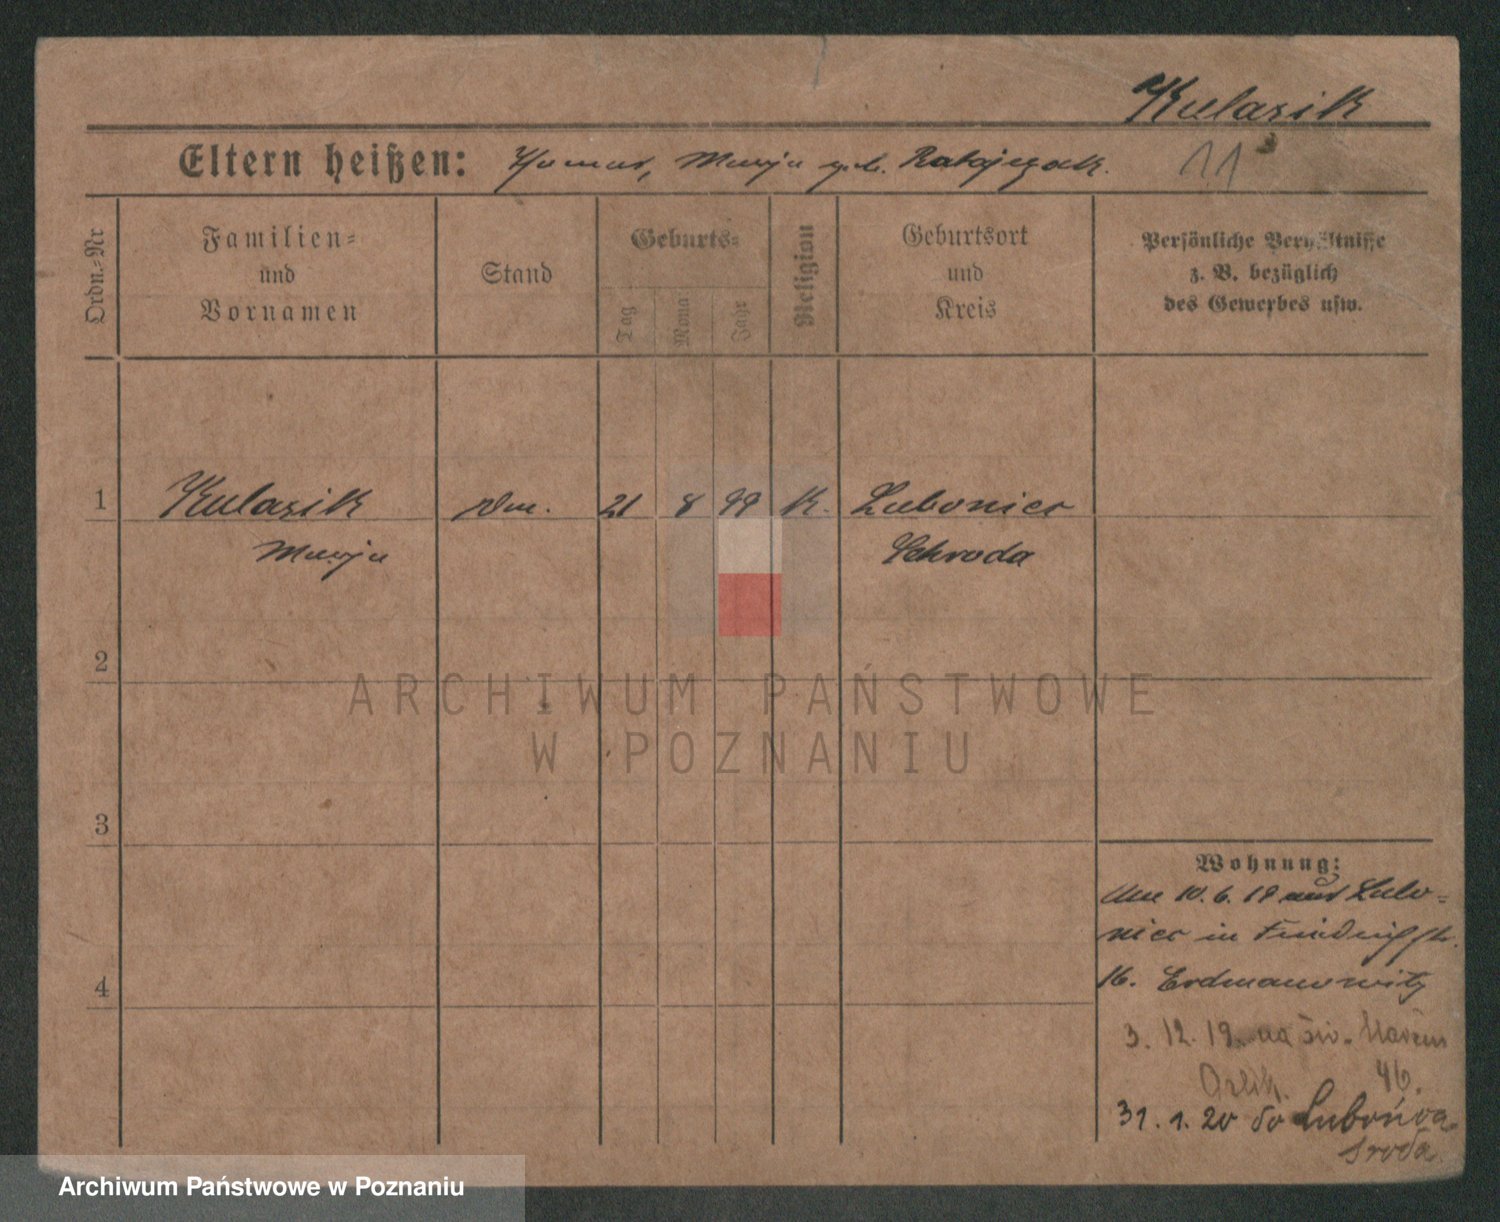 Kulasik
Eltern heißen: Thomas, Marja geb. Ratajczak. 11
Ordn.-Nr
Familien=
und
Vornamen
Stand
Geburts=
Tag
Mona
Jahr
Religion
Geburtsort
und
Kreis
Persönliche Verhältnisse
z. B. bezüglich
des Gewerbes usw.
1 Kulasik 21 8 99 K. Lubonicr
Marja Schroda
2
ARCHIWUM PAŃSTWOWE
W POZNANIU
3
Wohnung:
10.6.19 aus Lubo-
nicr in Friedrichstr.
4
16. Erdmanowitz
3.12.19. na św. Marcin
Orlik. 46.
31.1.20 do Lubońca
Środa.
Archiwum Państwowe w Poznaniu